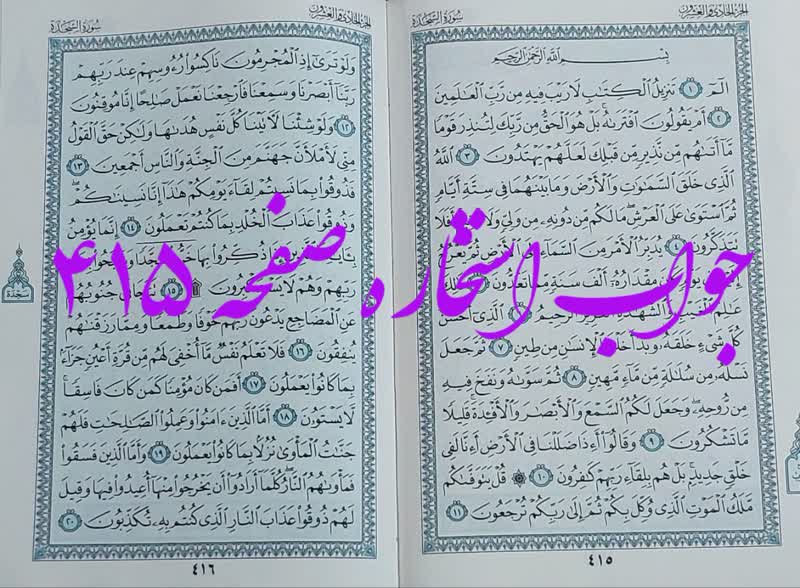 الجزء الحادي والعشرون
سورة السجدة
بسم الله الرحمن الرحيم
الٓمٓ ١ تَنزِيلُ ٱلْكِتَٰبِ لَا رَيْبَ فِيهِ مِن رَّبِّ ٱلْعَٰلَمِينَ
٢ أَمْ يَقُولُونَ ٱفْتَرَىٰهُ بَلْ هُوَ ٱلْحَقُّ مِن رَّبِّكَ لِتُنذِرَ قَوْمًا
مَّآ أَتَىٰهُم مِّن نَّذِيرٍ مِّن قَبْلِكَ لَعَلَّهُمْ يَهْتَدُونَ ٣ ٱللَّهُ
ٱلَّذِى خَلَقَ ٱلسَّمَٰوَٰتِ وَٱلْأَرْضَ وَمَا بَيْنَهُمَا فِى سِتَّةِ أَيَّامٍ
ثُمَّ ٱسْتَوَىٰ عَلَى ٱلْعَرْشِ مَا لَكُم مِّن دُونِهِۦ مِن وَلِىٍّ وَلَا أَفَلَا
تَتَذَكَّرُونَ ٤ يُدَبِّرُ ٱلْأَمْرَ مِنَ ٱلسَّمَآءِ إِلَى ٱلْأَرْضِ ثُمَّ يَعْرُجُ
يَوْمٍ مِقْدَارُهُۥٓ أَلْفَ سَنَةٍ مِّمَّا تَعُدُّونَ
عَٰلِمُ ٱلْغَيْبِ وَٱلشَّهَٰدَةِ ٱلْعَزِيزُ ٱلرَّحِيمُ ٱلَّذِىٓ أَحْسَنَ
كُلَّ شَىْءٍ خَلَقَهُۥ وَبَدَأَ خَلْقَ ٱلْإِنسَٰنِ مِن طِينٍ ٧ ثُمَّ جَعَلَ
نَسْلَهُۥ مِن سُلَٰلَةٍ مِّن مَّآءٍ مَّهِينٍ ٨ ثُمَّ سَوَّىٰهُ وَنَفَخَ فِيهِ
مِن رُّوحِهِۦ وَجَعَلَ لَكُمُ ٱلسَّمْعَ وَٱلْأَبْصَٰرَ وَٱلْأَفْـِٔدَةَ قَلِيلًا
مَّا تَشْكُرُونَ ٩ وَقَالُوٓا۟ أَءِذَا ضَلَلْنَا فِى ٱلْأَرْضِ أَءِنَّا لَفِى
خَلْقٍ جَدِيدٍۭ بَلْ هُم بِلِقَآءِ رَبِّهِمْ كَٰفِرُونَ ١٠ ۞ قُلْ يَتَوَفَّىٰكُم
مَّلَكُ ٱلْمَوْتِ ٱلَّذِى وُكِّلَ بِكُمْ ثُمَّ إِلَىٰ رَبِّكُمْ تُرْجَعُونَ ١١
٤١٥
الجزء الحادي والعشرون
سورة السجدة
وَلَوْ تَرَىٰٓ إِذِ ٱلْمُجْرِمُونَ نَاكِسُوا۟ رُءُوسِهِمْ عِندَ رَبِّهِمْ
رَبَّنَآ أَبْصَرْنَا وَسَمِعْنَا فَٱرْجِعْنَا نَعْمَلْ صَٰلِحًا إِنَّا مُوقِنُونَ
١٢ وَلَوْ شِئْنَا لَءَاتَيْنَا كُلَّ نَفْسٍ هُدَىٰهَا وَلَٰكِنْ حَقَّ ٱلْقَوْلُ
مِنِّى لَأَمْلَأَنَّ جَهَنَّمَ مِنَ ٱلْجِنَّةِ وَٱلنَّاسِ أَجْمَعِينَ ١٣
فَذُوقُوا۟ بِمَا نَسِيتُمْ لِقَآءَ يَوْمِكُمْ هَٰذَآ إِنَّا نَسِينَٰكُمْ
وَذُوقُوا۟ عَذَابَ ٱلْخُلْدِ بِمَا كُنتُمْ تَعْمَلُونَ ١٤ إِنَّمَا يُؤْمِنُ
ذُكِّرُوا۟ بِهَا
رَبِّهِمْ وَهُمْ لَا يَسْتَكْبِرُونَ ۩ ١٥ تَتَجَافَىٰ جُنُوبُهُمْ
عَنِ ٱلْمَضَاجِعِ يَدْعُونَ رَبَّهُمْ خَوْفًا وَطَمَعًا وَمِمَّا رَزَقْنَٰهُمْ
يُنفِقُونَ ١٦ فَلَا تَعْلَمُ نَفْسٌ مَّآ أُخْفِىَ لَهُم مِّن قُرَّةِ أَعْيُنٍ جَزَآءًۢ
بِمَا كَانُوا۟ يَعْمَلُونَ ١٧ أَفَمَن كَانَ مُؤْمِنًا كَمَن كَانَ فَاسِقًا
لَّا يَسْتَوُۥنَ ١٨ أَمَّا ٱلَّذِينَ ءَامَنُوا۟ وَعَمِلُوا۟ ٱلصَّٰلِحَٰتِ فَلَهُمْ
جَنَّٰتُ ٱلْمَأْوَىٰ نُزُلًۢا بِمَا كَانُوا۟ يَعْمَلُونَ ١٩ وَأَمَّا ٱلَّذِينَ فَسَقُوا۟
فَمَأْوَىٰهُمُ ٱلنَّارُ كُلَّمَآ أَرَادُوٓا۟ أَن يَخْرُجُوا۟ مِنْهَآ أُعِيدُوا۟ فِيهَا وَقِيلَ
لَهُمْ ذُوقُوا۟ عَذَابَ ٱلنَّارِ ٱلَّذِى كُنتُم بِهِۦ تُكَذِّبُونَ ٢٠
سجدة
٤١٦
جواب استخاره صفحه ۴۱۵